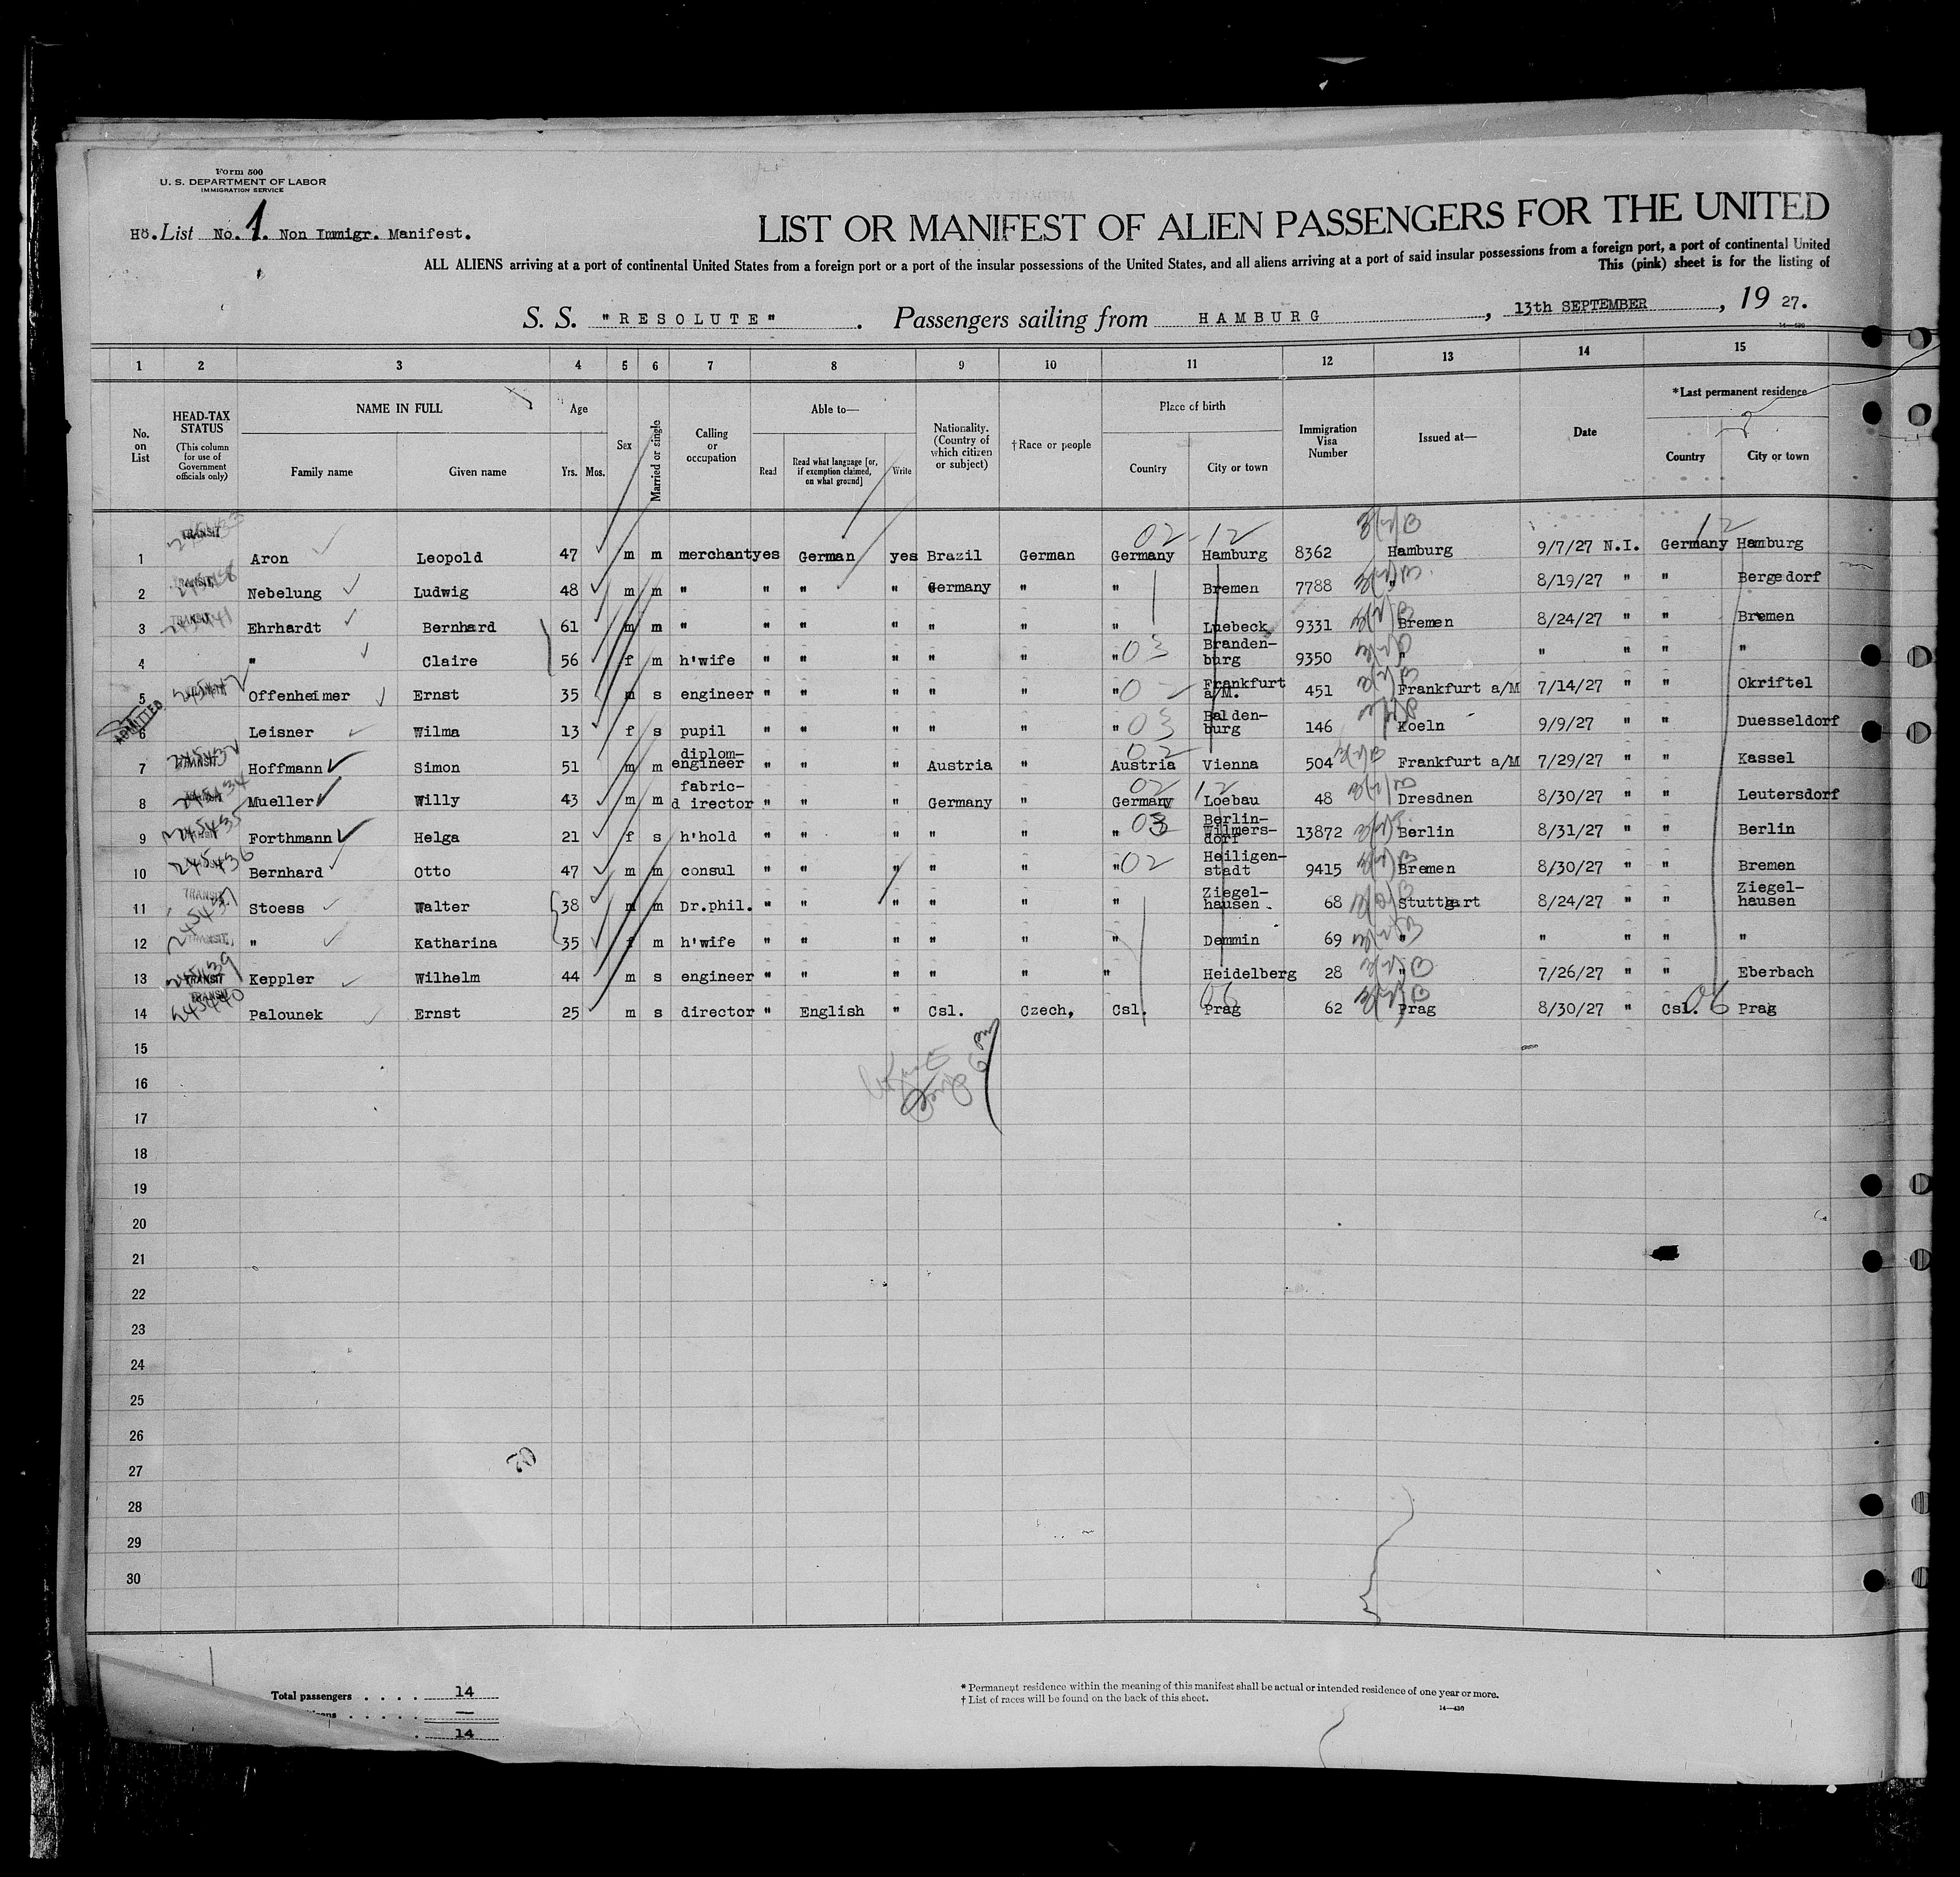 Form 500
U. S. DEPARTMENT OF LABOR
IMMIGRATION SERVICE
Hö. List No. 1. Non Immigr. Manifest.
LIST OR MANIFEST OF ALIEN PASSENGERS FOR THE UNITED
ALL ALIENS arriving at a port of continental United States from a foreign port or a port of the insular possessions of the United States, and all aliens arriving at a port of said insular possessions from a foreign port, a port of continental United
This (pink) sheet is for the listing of
S. S. "RESOLUTE" . Passengers sailing from HAMBURG , 13th SEPTEMBER , 19 27.
14—430
1 2 3 4 5 6 7 8 9 10 11 12 13 14 15
No. on List
HEAD-TAX STATUS (This column for use of Government officials only)
NAME IN FULL Family name Given name
Age Yrs. Mos.
Sex
Married or single
Calling or occupation
Able to— Read Read what language [or, if exemption claimed, on what ground] Write
Nationality. (Country of which citizen or subject)
†Race or people
Place of birth Country City or town
Immigration Visa Number
Issued at—
Date
*Last permanent residence Country City or town
02 - 12 12
1 TRANSIT Aron Leopold 47 m m merchant yes German yes Brazil German Germany Hamburg 8362 Hamburg 9/7/27 N.I. Germany Hamburg
2 TRANSIT Nebelung Ludwig 48 m m " " " " Germany " " Bremen 7788 " 8/19/27 " " Bergedorf
3 TRANSIT Ehrhardt Bernhard 61 m m " " " " " " " Luebeck 9331 Bremen 8/24/27 " " Bremen
4 " Claire 56 f m h'wife " " " " " " 03 Branden-burg 9350 " " " " "
5 Offenheimer Ernst 35 m s engineer " " " " " " Frankfurt a/M. 451 Frankfurt a/M 7/14/27 " " Okriftel
ADMITTED
6 Leisner Wilma 13 f s pupil " " " " " " 03 Balden-burg 146 Koeln 9/9/27 " " Duesseldorf
7 TRANSIT Hoffmann Simon 51 m m diplom-engineer " " " Austria " Austria 02 Vienna 504 Frankfurt a/M 7/29/27 " " Kassel
8 Mueller Willy 43 m m fabric-director " " " Germany " Germany 02 12 Loebau 48 Dresdnen 8/30/27 " " Leutersdorf
9 245435 Forthmann Helga 21 f s h'hold " " " " " " 03 Berlin-Wilmers-dorf 13872 Berlin 8/31/27 " " Berlin
10 245436 Bernhard Otto 47 m m consul " " " " " " 02 Heiligen-stadt 9415 Bremen 8/30/27 " " Bremen
11 TRANSIT 245437 Stoess Walter 38 m m Dr.phil. " " " " " " Ziegel-hausen. 68 Stuttgart 8/24/27 " " Ziegel-hausen
12 TRANSIT. " Katharina 35 f m h'wife " " " " " " Demmin 69 " " " " "
13 245439 TRANSIT Keppler Wilhelm 44 m s engineer " " " " " " Heidelberg 28 " 7/26/27 " " Eberbach
14 TRANSIT 245440 Palounek Ernst 25 m s director " English " Csl. Czech, Csl. 06 Prag 62 Prag 8/30/27 " Csl. 06 Prag
15
16
17
18
19
20
21
22
23
24
25
26
27
28
29
30
Total passengers . . . . 14
—
14
* Permanent residence within the meaning of this manifest shall be actual or intended residence of one year or more.
† List of races will be found on the back of this sheet.
14—430